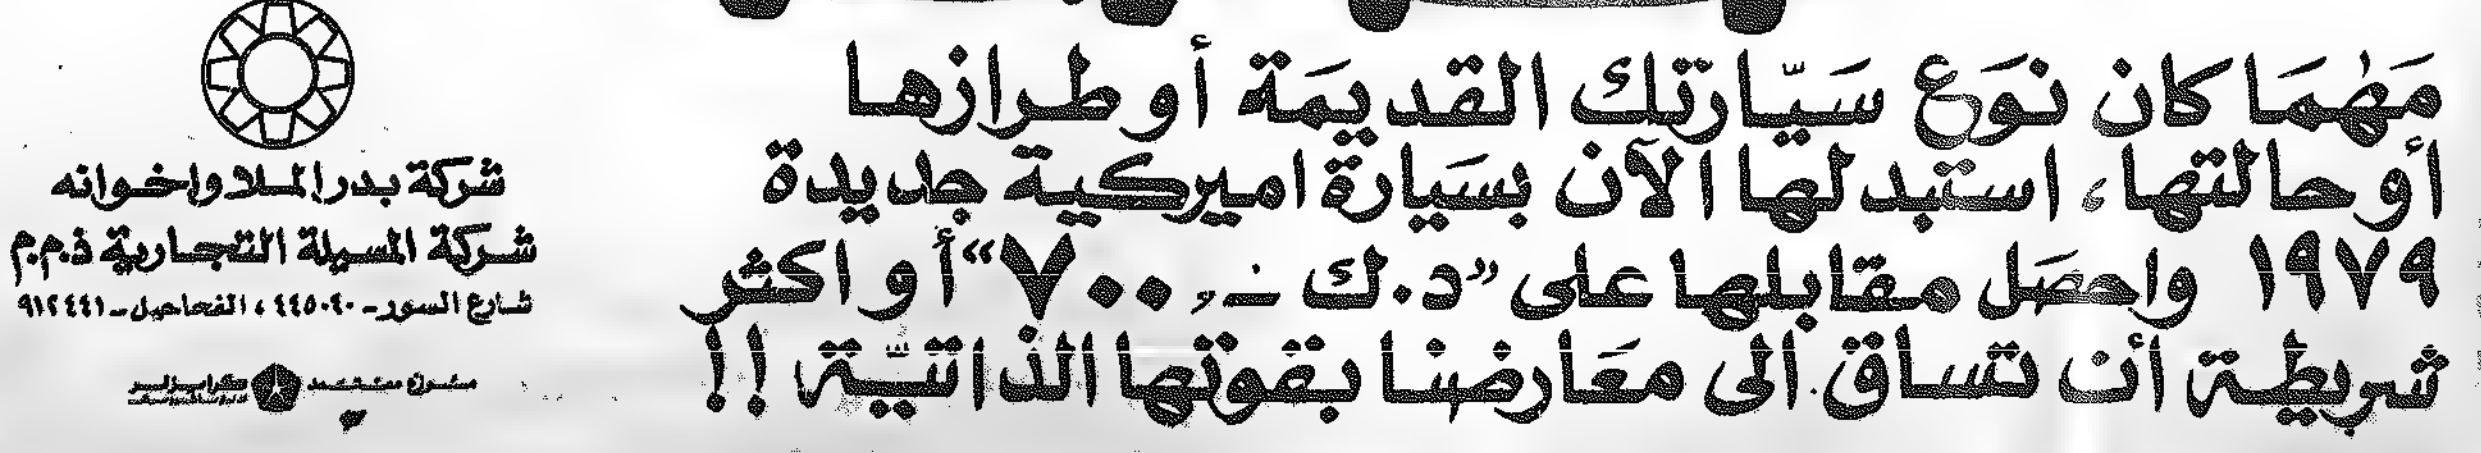 مَهْمَا كان نوَع سَيّارتك القديمَة أو طرازها
أو حالتها، استبدلها الآن بسَيارة اميركية جديدة
١٩٧٩ واحصَل مقابلها على "د.ك -,٧٠٠" أو اكثر
شريطة أن تساق الى معَارضنا بقوتها الذاتيّة !!
شركة بدر الملا واخوانه
شركة المسيلة التجارية ذ.م.م
شارع السور - ٤٤٥٠٤٠ ، الفحاحيل - ٩١٢٤٤١
كرايزلر